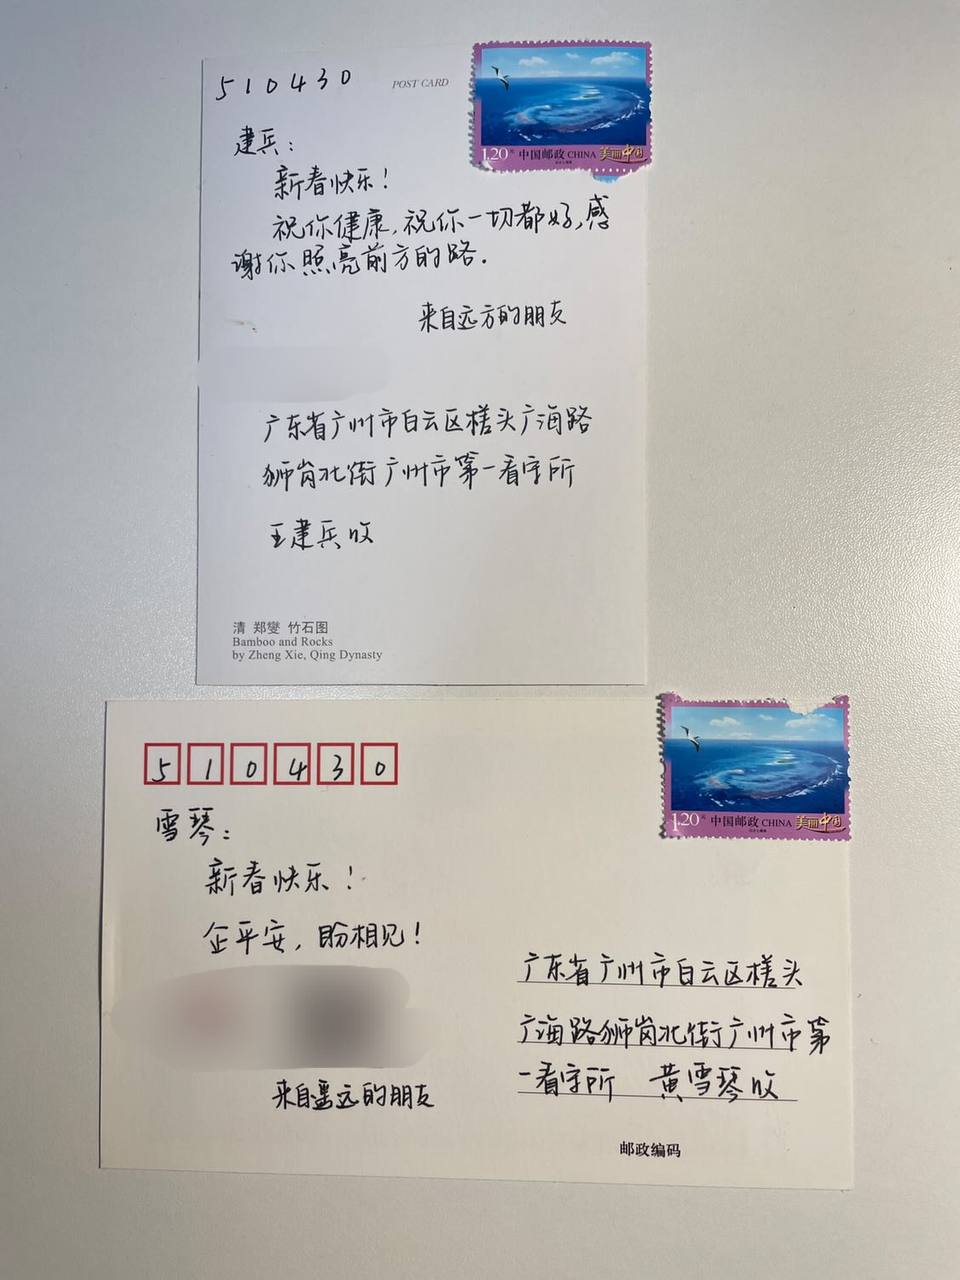 510430
POST CARD
1.20元 中国邮政 CHINA 美丽中国
建兵：
新春快乐！
祝你健康，祝你一切都好，感
谢你照亮前方的路.
来自远方的朋友
广东省广州市白云区槎头广海路
狮岗北街广州市第一看守所
王建兵收
清 郑燮 竹石图
Bamboo and Rocks
by Zheng Xie, Qing Dynasty
510430
1.20元 中国邮政 CHINA 美丽中国
雪琴：
新春快乐！
企平安，盼相见！
来自遥远的朋友
广东省广州市白云区槎头
广海路狮岗北街广州市第
一看守所 黄雪琴收
邮政编码